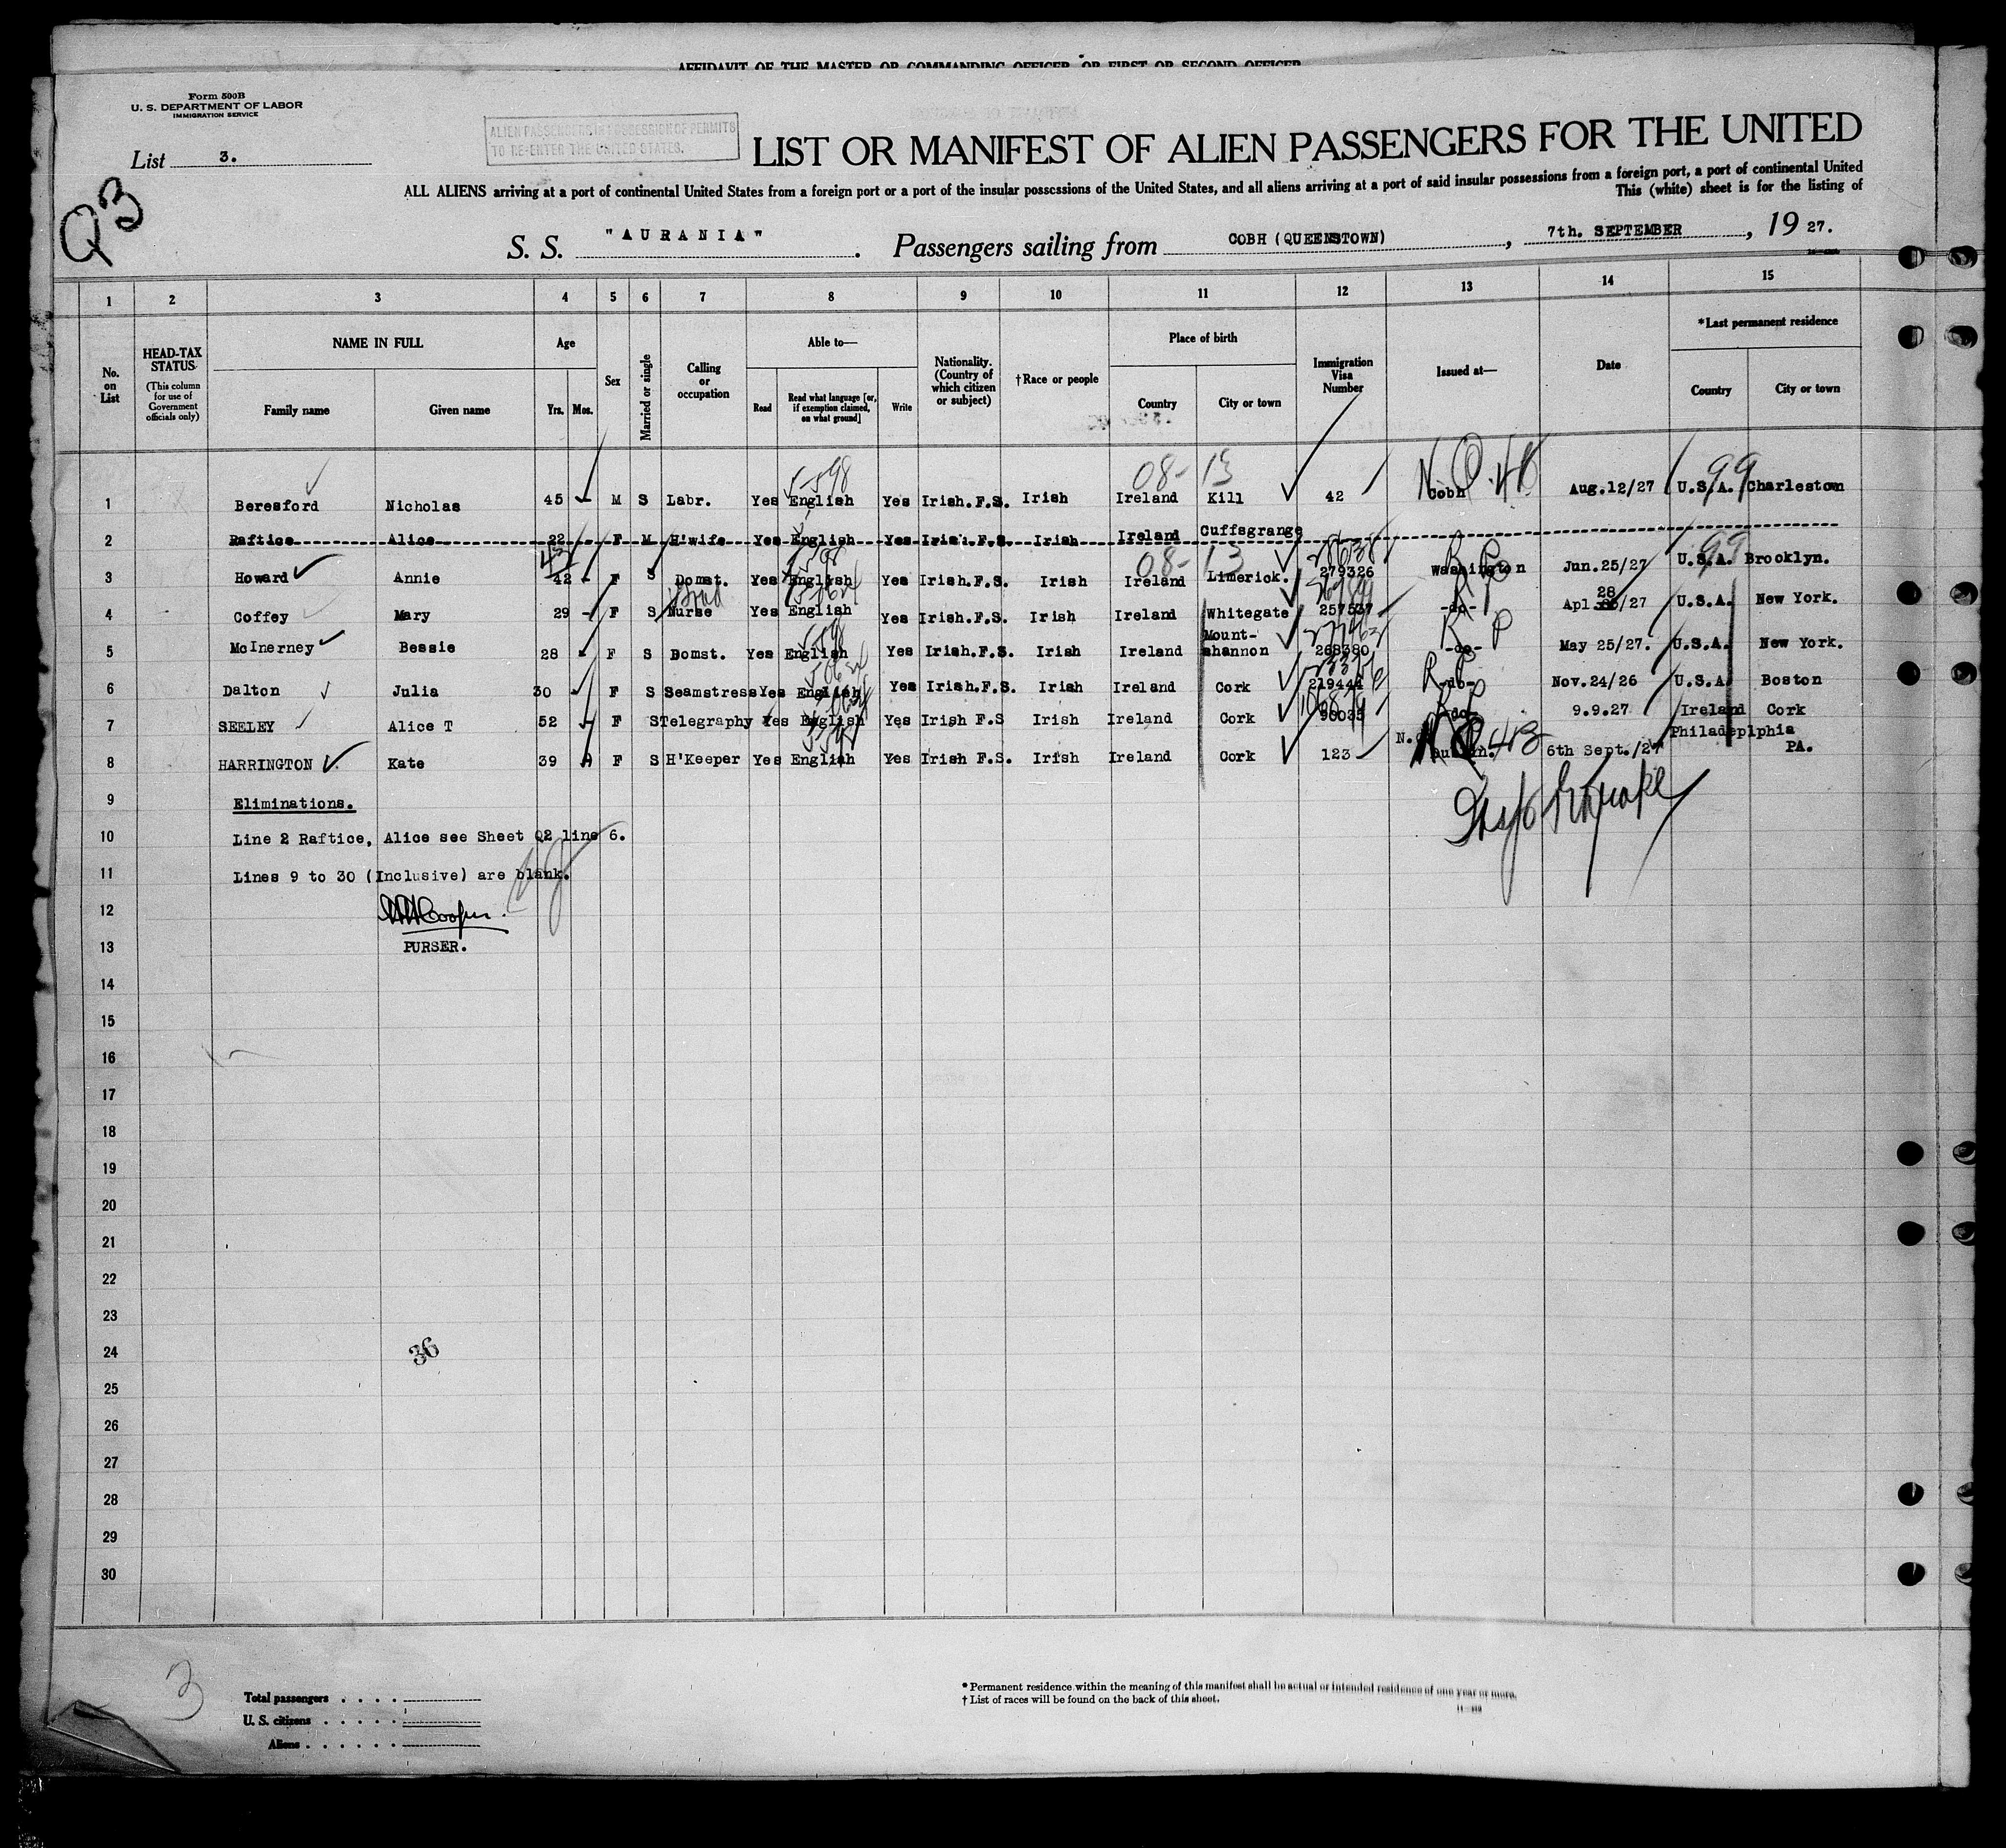 AFFIDAVIT OF THE MASTER OR COMMANDING OFFICER OR FIRST OR SECOND OFFICER
Form 500B
U. S. DEPARTMENT OF LABOR
IMMIGRATION SERVICE
List 3.
ALIEN PASSENGERS IN POSSESSION OF PERMITS
TO RE-ENTER THE UNITED STATES.
Q3
LIST OR MANIFEST OF ALIEN PASSENGERS FOR THE UNITED
ALL ALIENS arriving at a port of continental United States from a foreign port or a port of the insular possessions of the United States, and all aliens arriving at a port of said insular possessions from a foreign port, a port of continental United
This (white) sheet is for the listing of
S. S. "AURANIA". Passengers sailing from COBH (QUEENSTOWN), 7th. SEPTEMBER, 19 27.
1 2 3 4 5 6 7 8 9 10 11 12 13 14 15
No. on List
HEAD-TAX STATUS (This column for use of Government officials only)
NAME IN FULL Family name Given name
Age Yrs. Mos.
Sex
Married or single
Calling or occupation
Able to— Read Read what language [or, if exemption claimed, on what ground] Write
Nationality. (Country of which citizen or subject)
† Race or people
Place of birth Country City or town
Immigration Visa Number
Issued at—
Date
*Last permanent residence Country City or town
5-598 08-13 N.Q. 99
1 Beresford Nicholas 45 - M S Labr. Yes English Yes Irish.F.S. Irish Ireland Kill 42 Cobh Aug.12/27 U.S.A. Charleston
2 Raftice Alice 22 F M H'wife Yes English Yes Irish.F.S. Irish Ireland Cuffsgrange
08-13 99
3 Howard Annie 42 - F S Domst. Yes English Yes Irish.F.S. Irish Ireland Limerick. 279326 Washington Jun.25/27 U.S.A. Brooklyn.
4 Coffey Mary 29 - F S Nurse Yes English Yes Irish.F.S. Irish Ireland Whitegate 257537 -do- Apl 28/27 U.S.A. New York.
5 McInerney Bessie 28 - F S Domst. Yes English Yes Irish.F.S. Irish Ireland Mount-shannon 268380 -do- May 25/27. U.S.A. New York.
6 Dalton Julia 30 F S Seamstress Yes English Yes Irish.F.S. Irish Ireland Cork 219444 -do- Nov.24/26 U.S.A. Boston
7 SEELEY Alice T 52 - F S Telegraphy Yes English Yes Irish F.S Irish Ireland Cork 90035 -do- 9.9.27 Ireland Cork
8 HARRINGTON Kate 39 F S H'Keeper Yes English Yes Irish F.S. Irish Ireland Cork 123 6th Sept./27 Philadeplphia PA.
9 Eliminations.
10 Line 2 Raftice, Alice see Sheet Q2 line 6.
11 Lines 9 to 30 (Inclusive) are blank.
12 Cooper.
13 PURSER.
14
15
16
17
18
19
20
21
22
23
24 36
25
26
27
28
29
30
3
Total passengers
U. S. citizens
Aliens
* Permanent residence within the meaning of this manifest shall be actual or intended residence of one year or more.
† List of races will be found on the back of this sheet.